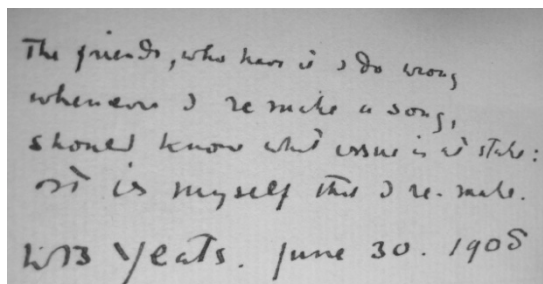 The friends, who have it I do wrong
whenever I re make a song,
should know what issue is at stake:
it is myself that I re-make.
WB Yeats. June 30. 1908